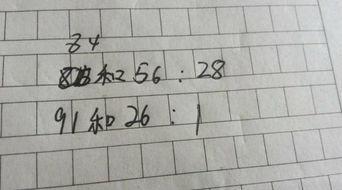 84
和56:28
91和26:1